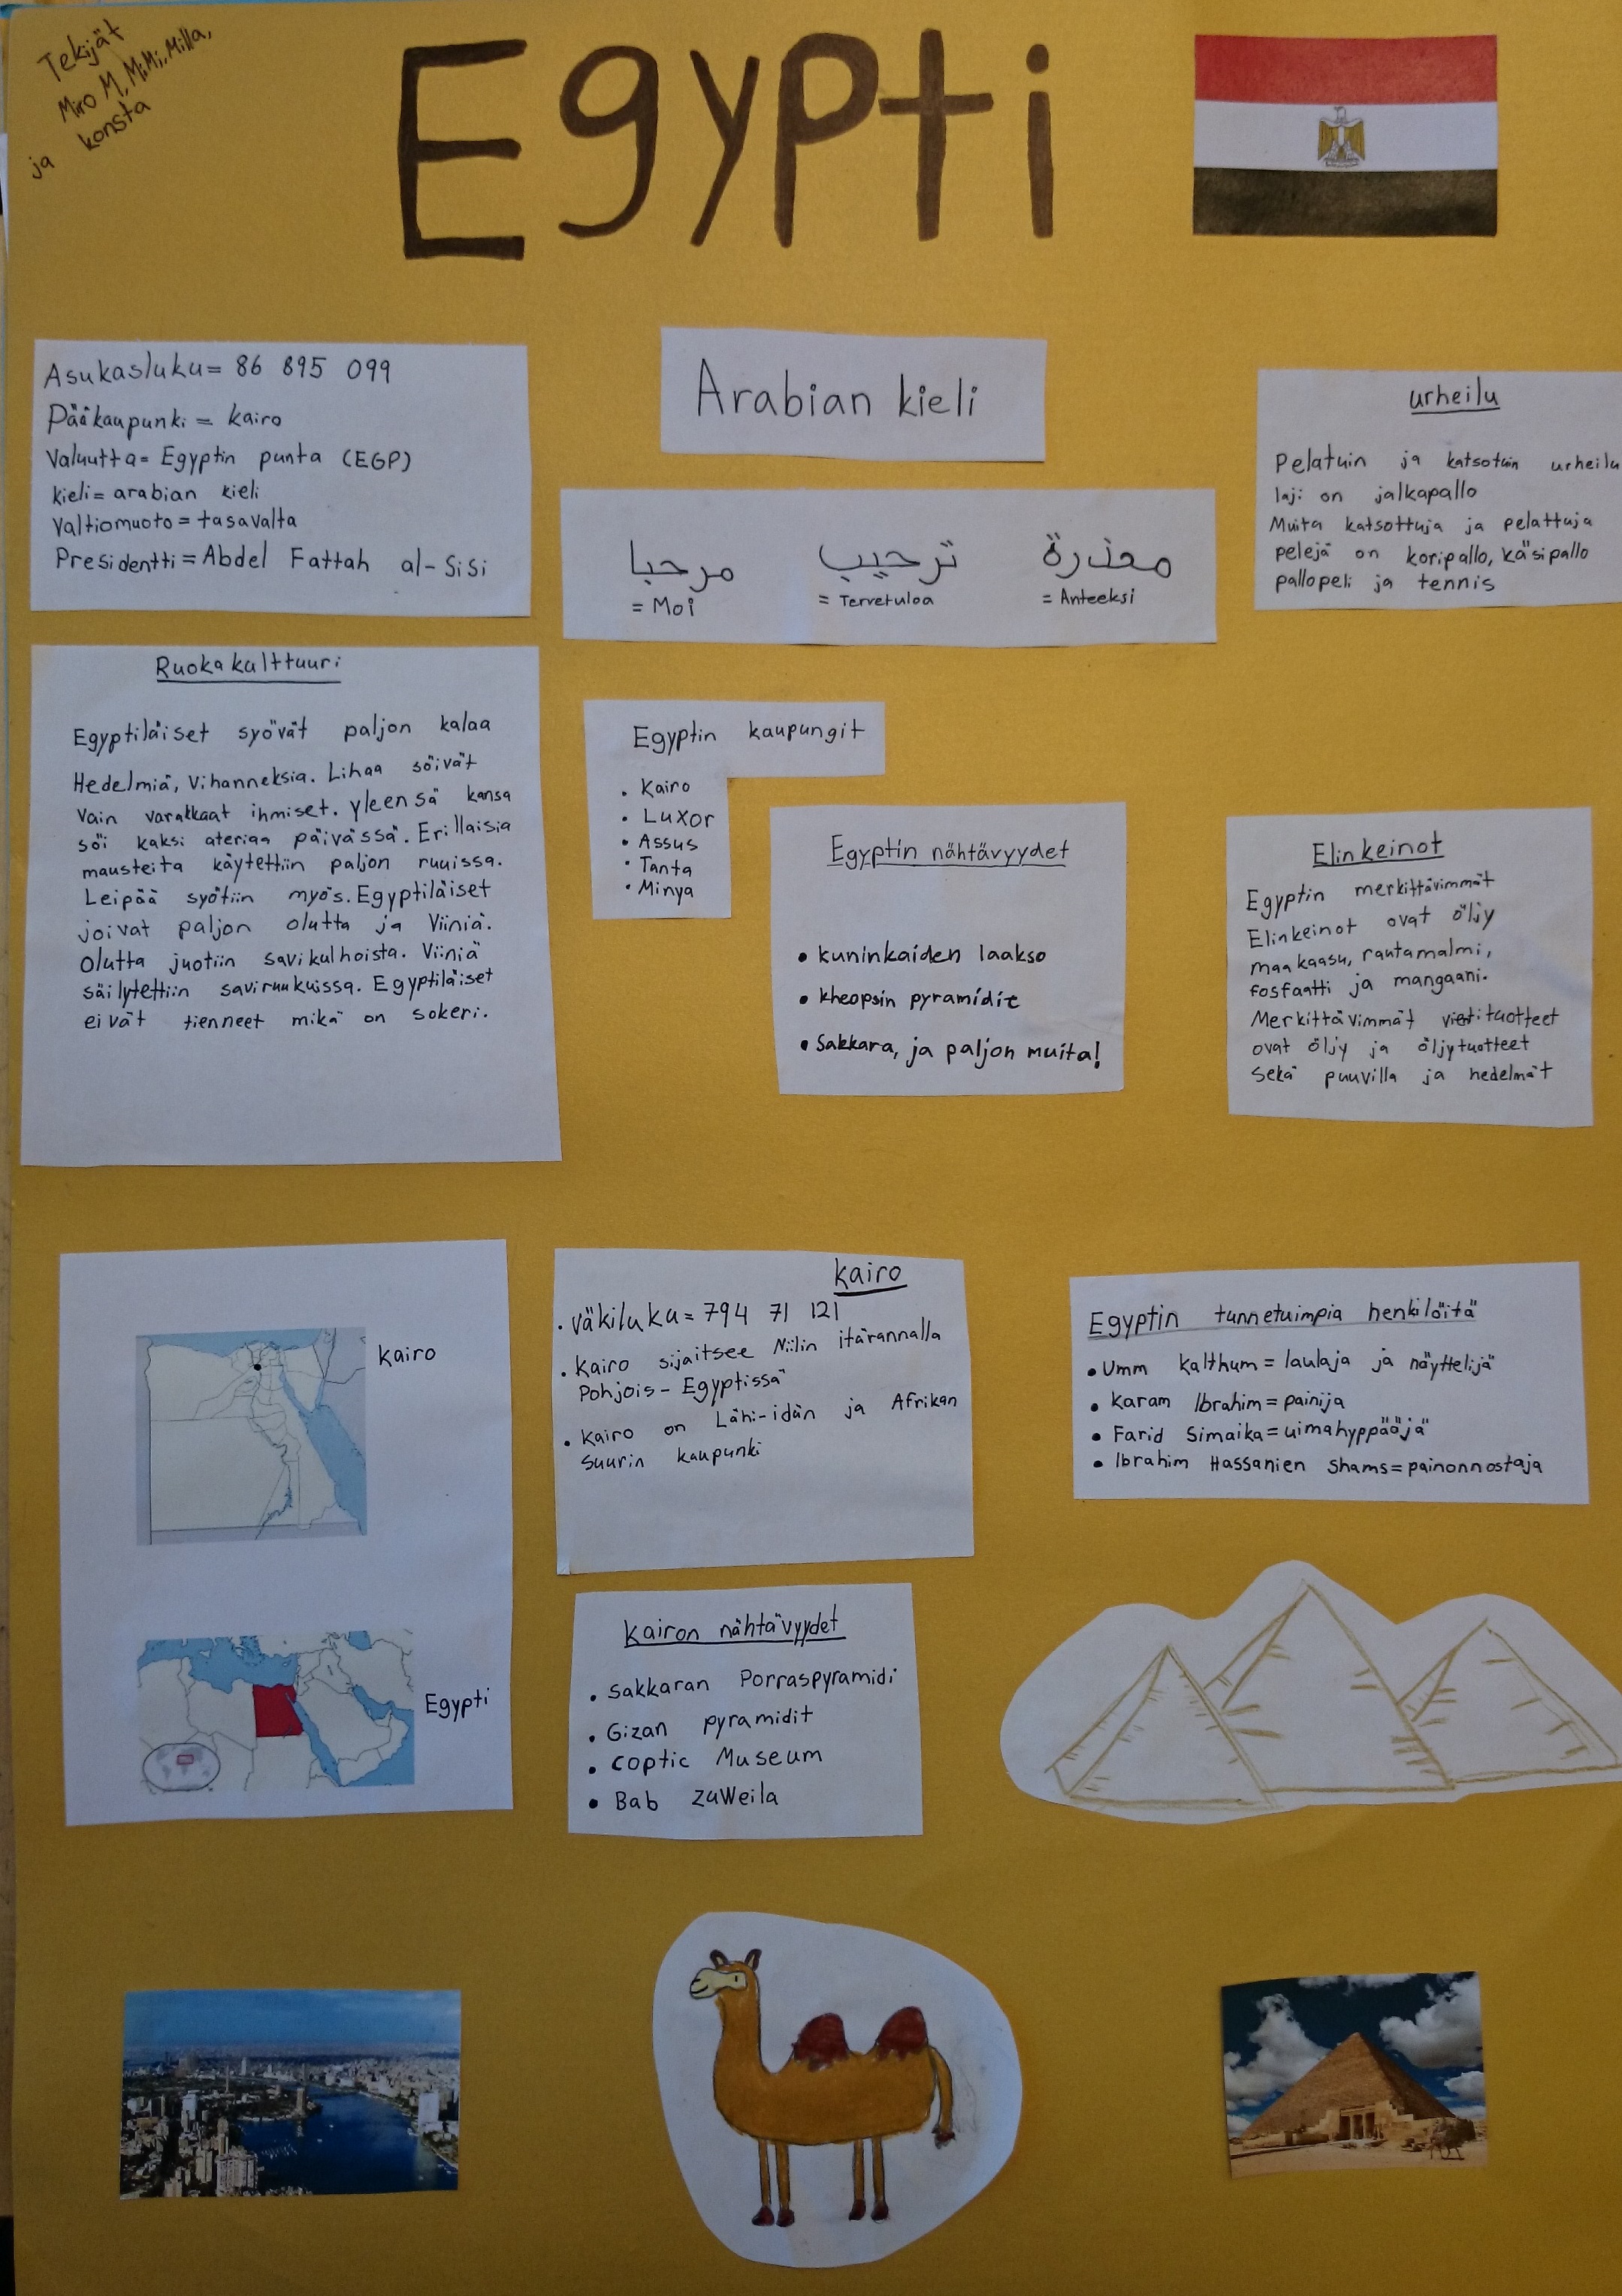 Tekijät
Miro M, MiMi, Milla,
ja konsta
Egypti
Asukasluku= 86 895 099
Pääkaupunki = kairo
Valuutta= Egyptin punta (EGP)
kieli= arabian kieli
Valtiomuoto = tasavalta
Presidentti = Abdel Fattah al-SiSi
Arabian kieli
مرحبا
= Moi
ترحيب
= Tervetuloa
معذرة
= Anteeksi
urheilu
Pelatuin ja katsotuin urheilu
laji on jalkapallo
Muita katsottuja ja pelattuja
pelejä on koripallo, käsipallo
pallopeli ja tennis
Ruokakulttuuri
Egyptiläiset syövät paljon kalaa
Hedelmiä, Vihanneksia. Lihaa söivät
vain varakkaat ihmiset. yleensä kansa
söi kaksi ateriaa päivässä. Erillaisia
mausteita käytettiin paljon ruuissa.
Leipää syötiin myös. Egyptiläiset
joivat paljon olutta ja Viiniä.
olutta juotiin savikulhoista. Viiniä
säilytettiin saviruukuissa. Egyptiläiset
eivät tienneet mikä on sokeri.
Egyptin kaupungit
• Kairo
• Luxor
• Assus
• Tanta
• Minya
Egyptin nähtävyydet
• kuninkaiden laakso
• kheopsin pyramidit
• Sakkara, ja paljon muita!
Elinkeinot
Egyptin merkittävimmät
Elinkeinot ovat öljy
maakaasu, rautamalmi,
fosfaatti ja mangaani.
Merkittävimmät vientituotteet
ovat öljy ja öljytuotteet
Sekä puuvilla ja hedelmät
kairo
Egypti
kairo
• väkiluku= 794 71 121
• Kairo sijaitsee Niilin itärannalla
Pohjois-Egyptissä
• Kairo on Lähi-idän ja Afrikan
Suurin kaupunki
Egyptin tunnetuimpia henkilöitä
• Umm Kalthum = laulaja ja näyttelijä
• Karam Ibrahim = painija
• Farid Simaika = uimahyppääjä
• Ibrahim Hassanien Shams = painonnostaja
Kairon nähtävyydet
• Sakkaran Porraspyramidi
• Gizan pyramidit
• Coptic Museum
• Bab zuWeila